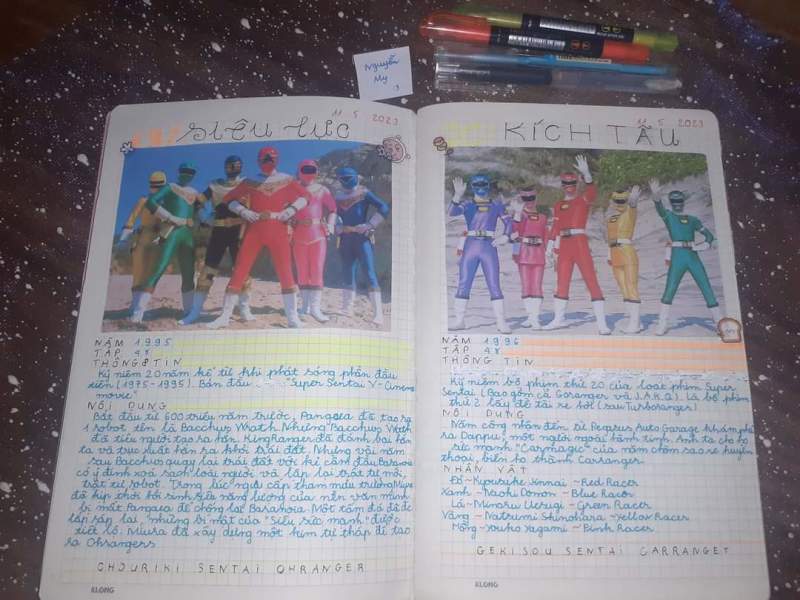 Nguyễn
My
11 5 2023
SIÊU LỰC
NĂM 1995
TẬP 48
THÔNG TIN
Kỷ niệm 20 năm kể từ khi phát sóng phần đầu
tiên (1975-1995). Bản đầu "Super Sentai V-Cinema
movie"
NỘI DUNG
Bắt đầu từ 600 triệu năm trước, Pangaea đã tạo ra
1 robot tên là Bacchus Wrath. Nhưng Bacchus Wrath
đã tiêu người tạo ra hắn. KingRanger đã đánh bại hắn
ta và trục xuất hắn ra khỏi trái đất. Nhưng vài năm
sau Bacchus quay lại trái đất với kẻ cầm đầu Baranoia
có ý định xóa sạch loài người và lập lại trật tự mới,
trật tự robot. Trong lúc nguy cấp tham mưu trưởng Miura
đã kịp thời hồi sinh sức năng lượng của nền văn minh
bí mật Pangaea để chống lại Baranoia. Một tấm đá đã được
lắp sắp lại, "những bí mật của "siêu sức mạnh" được
tiết lộ. Miura đã xây dựng một kim tự tháp để tạo
ra Ohrangers
CHOURIKI SENTAI OHRANGER
KLONG
11 5 2023
KÍCH TẨU
NĂM 1996
TẬP 48
THÔNG TIN
Kỷ niệm bộ phim thứ 20 của loạt phim Super
Sentai (Bao gồm cả Goranger và J.A.K.Q). Là bộ phim
thứ 2 lấy đề tài xe hơi (sau Turboranger)
NỘI DUNG
Năm công nhân đến từ Pegasus Auto Garage khám phá
ra Dappu, một người ngoài hành tinh. Anh ta cho họ
sức mạnh "Carmagic" của năm chòm sao xe huyền
thoại, biến họ thành Carranger.
NHÂN VẬT
Đỏ - Kyousuke Jinnai - Red Racer
Xanh - Naoki Domon - Blue Racer
Lá - Minoru Uesugi - Green Racer
Vàng - Natsumi Shinohara - Yellow Racer
Hồng - Youko Yagami - Pink Racer
GEKISOU SENTAI CARRANGER
KLONG